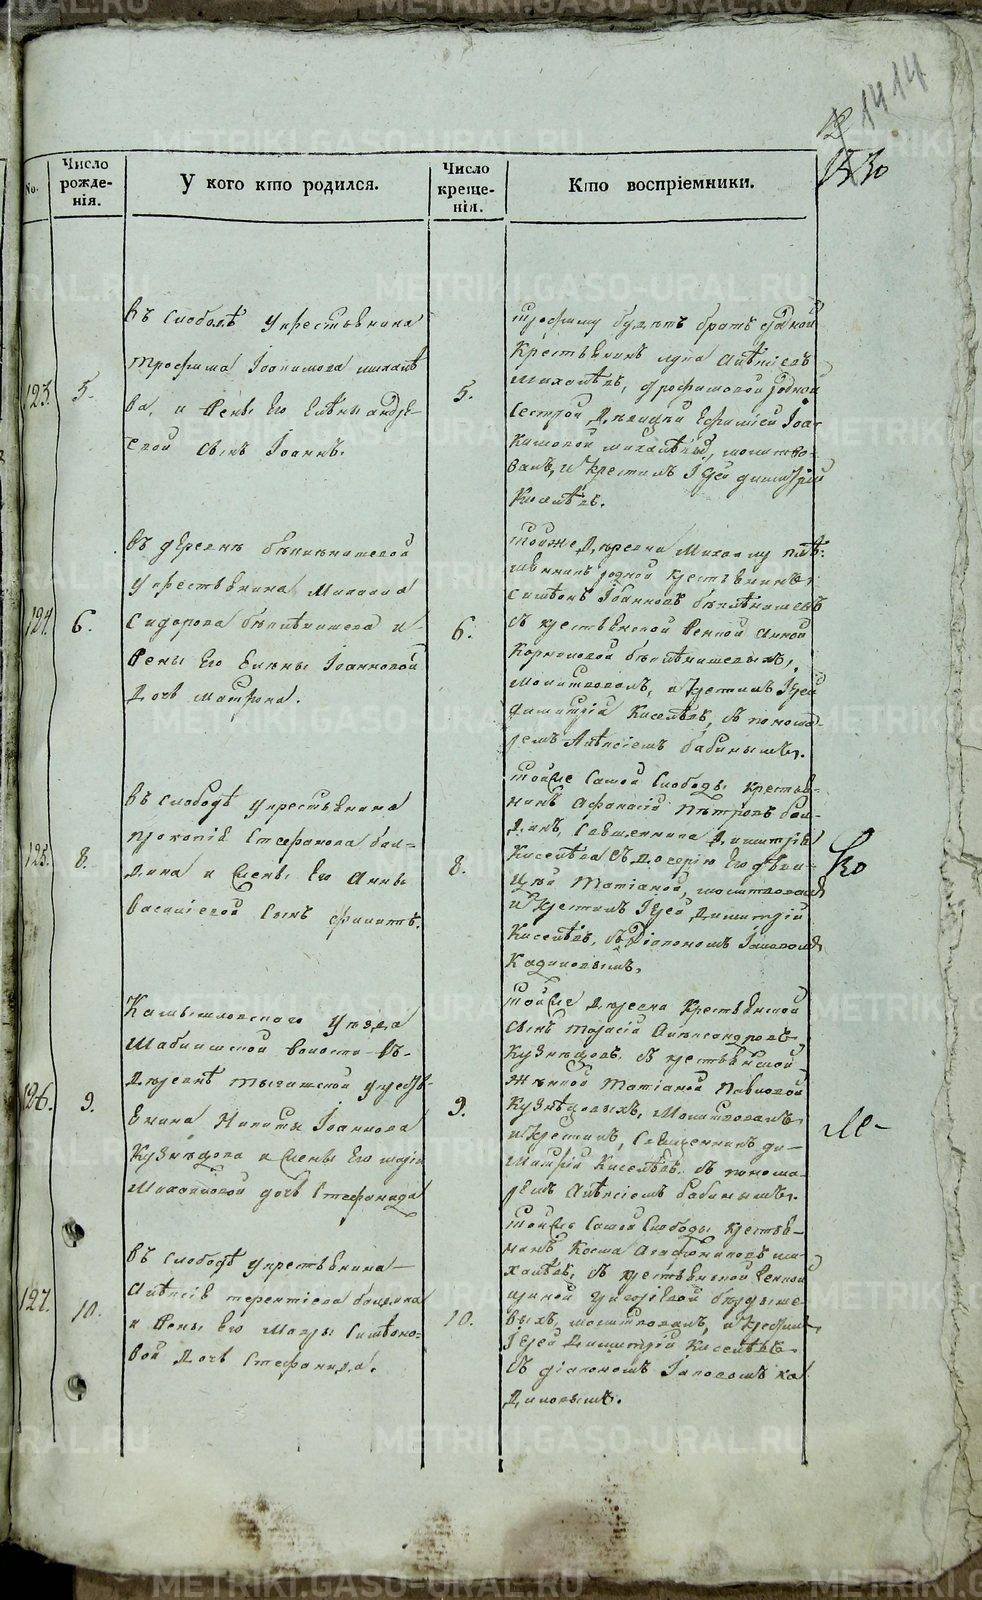 1414
1530
No.
Число рожде-нія.
У кого кто родился.
Число креще-нія.
Кто воспріемники.
123.
5.
въ слободѣ у крестьянина
трофима Іоакимова михалѣ
ва, и жены Его Елены андре-
евой сынъ Іоаннъ.
5.
трофиму будетъ братъ родной
крестьянинъ Алѣксѣевъ
Михалѣвъ, трофимовой родной
сестрой, дѣвицей Ефимiей Іоа-
кимовой михалѣвой, молитво-
валъ, и крестилъ Іерей димитрій
Киселѣвъ.
124.
6.
въ деревнѣ
у крестьянина Михаила
Сидорова и
жены Его Елены Іоанновой
дочь матрона.
6.
тойже деревни Михаилу
родной крестьянинъ
симеонъ Іоанновъ
съ крестьянской женкой Анной
Корниловой
молитвовалъ, и крестилъ Іерей
димитрій Киселѣвъ, съ понома-
ремъ Алѣксіемъ бабинымъ.
125.
8.
въ слободѣ у крестьянина
прокопія Стефанова бол-
дина и жены Его Анны
васильевой сынъ филиппъ.
8.
тойже самой слободы крестья-
нинъ Афанасій Пѣтровъ бол-
динъ, священника Димитрія
Киселѣва съ дочерію его дѣви-
цей Татіаной, молитвовалъ
и крестилъ Іерей Димитрій
Киселѣвъ, съ Діакономъ Іаковомъ
Кадиковымъ.
Ко
126.
9.
Камышловскаго уѣзда
волости въ
деревнѣ крестья-
нина Никиты Іоаннова
Кузнецова и жены Его марiи
Михаиловой дочь Стефанида
9.
тойже деревни крестьянской
сынъ тарасій Алѣксандровъ
Кузнѣцовъ съ крестьянской
жѣнкой Татіаной Павловой
Кузнѣцовыхъ, молитвовалъ
и крестилъ, священникъ ди-
митрій Киселѣвъ съ понома-
ремъ Алѣксіемъ бабинымъ.
127.
10.
въ слободѣ у крестьянина
Алѣксія терентіева болдина
и жены Его Мавры Симеоно-
вой дочь Стефанида.
10.
тойже самой слободы крестья-
нинъ Козма Агафониковъ ми-
халѣвъ, съ крестьянской женкой
молитвовалъ, и крестилъ
Іерей димитрій Киселѣвъ
съ діакономъ Іаковомъ ка
диковымъ.
METRIKI.GASO-URAL.RU